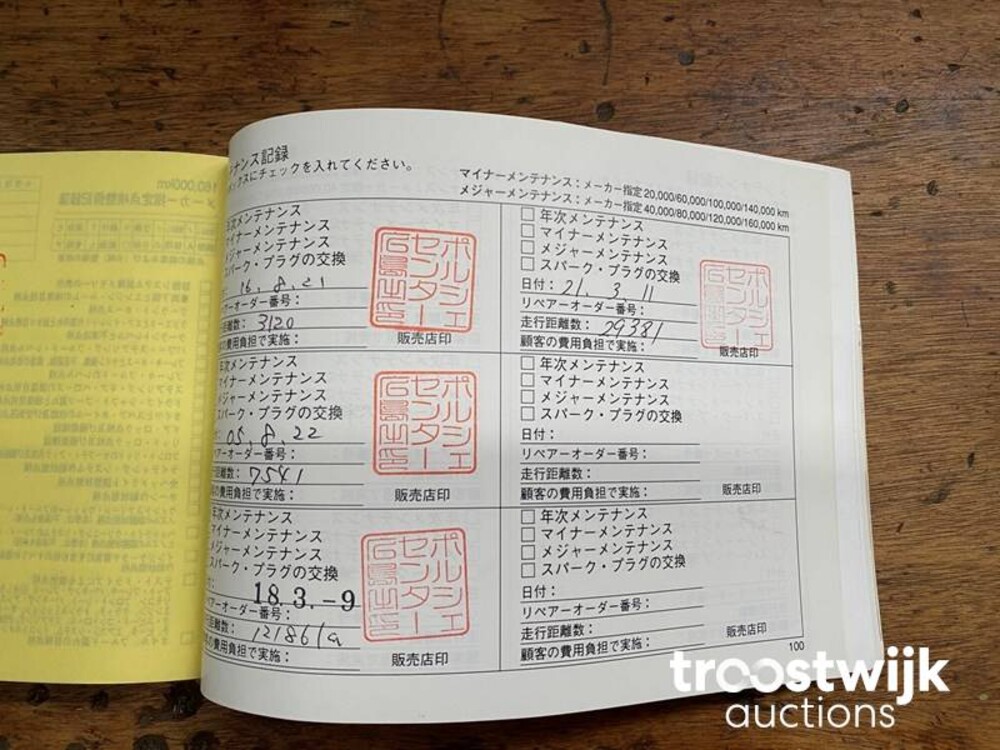 ナンス記録
ックスにチェックを入れてください。
マイナーメンテナンス：メーカー指定20,000/60,000/100,000/140,000 km
メジャーメンテナンス：メーカー指定40,000/80,000/120,000/160,000 km
年次メンテナンス
マイナーメンテナンス
メジャーメンテナンス
スパーク・プラグの交換
16.8.21
ペアーオーダー番号：
距離数：3120
客の費用負担で実施：
ポルシェ
センター
販売店印
年次メンテナンス
マイナーメンテナンス
メジャーメンテナンス
スパーク・プラグの交換
05.8.22
ペアーオーダー番号：
行距離数：7541
客の費用負担で実施：
ポルシェ
センター
販売店印
年次メンテナンス
マイナーメンテナンス
メジャーメンテナンス
スパーク・プラグの交換
18.3.-9
ペアーオーダー番号：
距離数：
客の費用負担で実施：
ポルシェ
センター
販売店印
年次メンテナンス
マイナーメンテナンス
メジャーメンテナンス
スパーク・プラグの交換
日付：21.3.11
リペアーオーダー番号：
走行距離数：29381
顧客の費用負担で実施：
ポルシェ
センター
販売店印
年次メンテナンス
マイナーメンテナンス
メジャーメンテナンス
スパーク・プラグの交換
日付：
リペアーオーダー番号：
走行距離数：
顧客の費用負担で実施：
販売店印
年次メンテナンス
マイナーメンテナンス
メジャーメンテナンス
スパーク・プラグの交換
日付：
リペアーオーダー番号：
走行距離数：
顧客の費用負担で実施：
販売店印
100
troostwijk
auctions